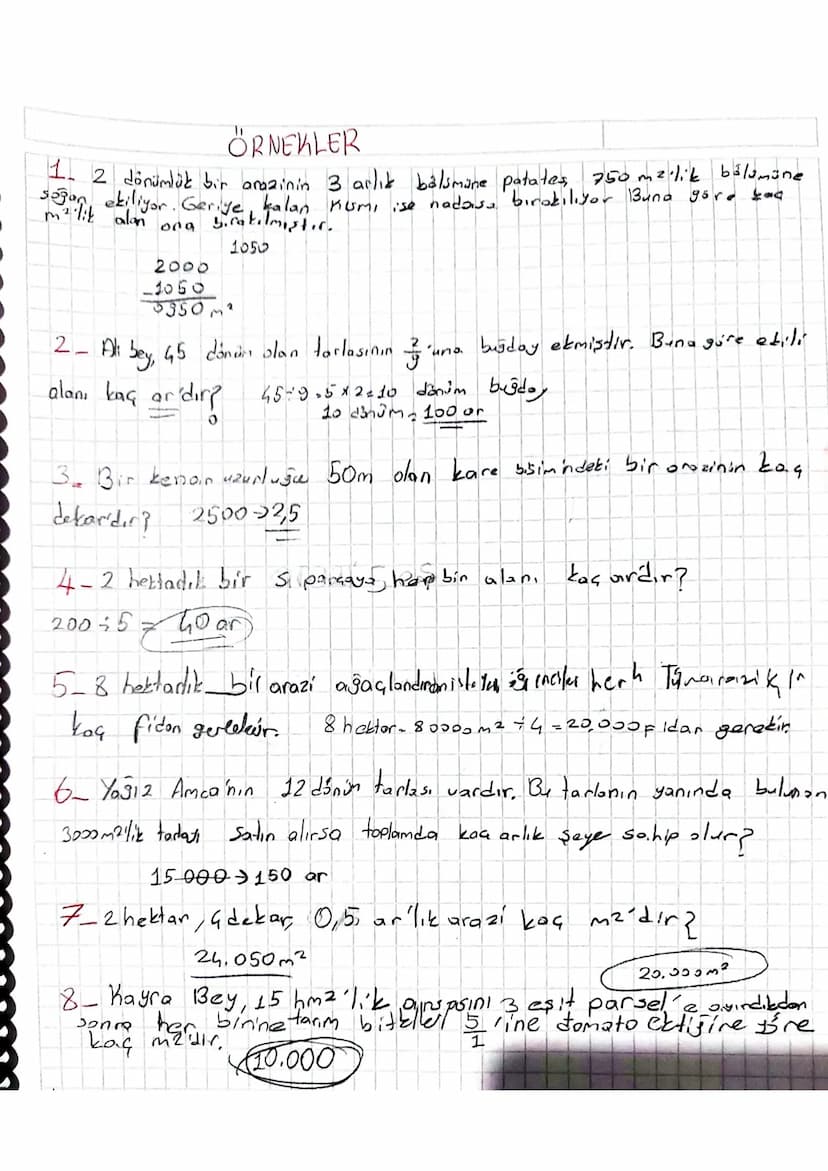 ÖRNEKLER
1- 2 dönümlük bir arazinin 3 arlık bölümüne patates, 750 m2'lik bölümüne
soğan ekiliyor. Geriye kalan kısmı ise nadasa bırakılıyor Buna göre kaç
m²'lik alan ona bırakılmıştır.
1050
2000
-1050
0950 m²
2- Ali bey, 45 dönüm olan tarlasının 2/9'una buğday ekmiştir. Buna göre ekili
alanı kaç ar'dır? 45÷9=5x2=10 dönüm buğday
10 dönüm = 100 ar
3- Bir kenar uzunluğu 50m olan kare biçimindeki bir arazinin kaç
dekardır? 2500→2,5
4-2 hektarlık bir parçaya, her bin alanı kaç ardır?
200÷5 = 40 ar
5-8 hektarlık bir arazi
kaç fidan gerekir. 8 hektar = 80000 m2 ÷4 = 20,000 fidan gerekir.
6- Yağız Amca'nın 12 dönüm tarlası vardır. Bu tarlanın yanında bulunan
3000 m2'lik satın alırsa toplamda kaç arlık şeye sahip olur?
15 000→150 ar
7- 2 hektar, 4 dekar, 0,5 ar'lık arazi kaç m2'dir?
24.050 m²
20.000 m²
8- Kayra Bey, 15 hm2'lik 3 eşit parsel'e ayırdıkdan
sonra her birine tarım 5/1 'ine domato ektiğine göre
kaç m2'dir.
10.000